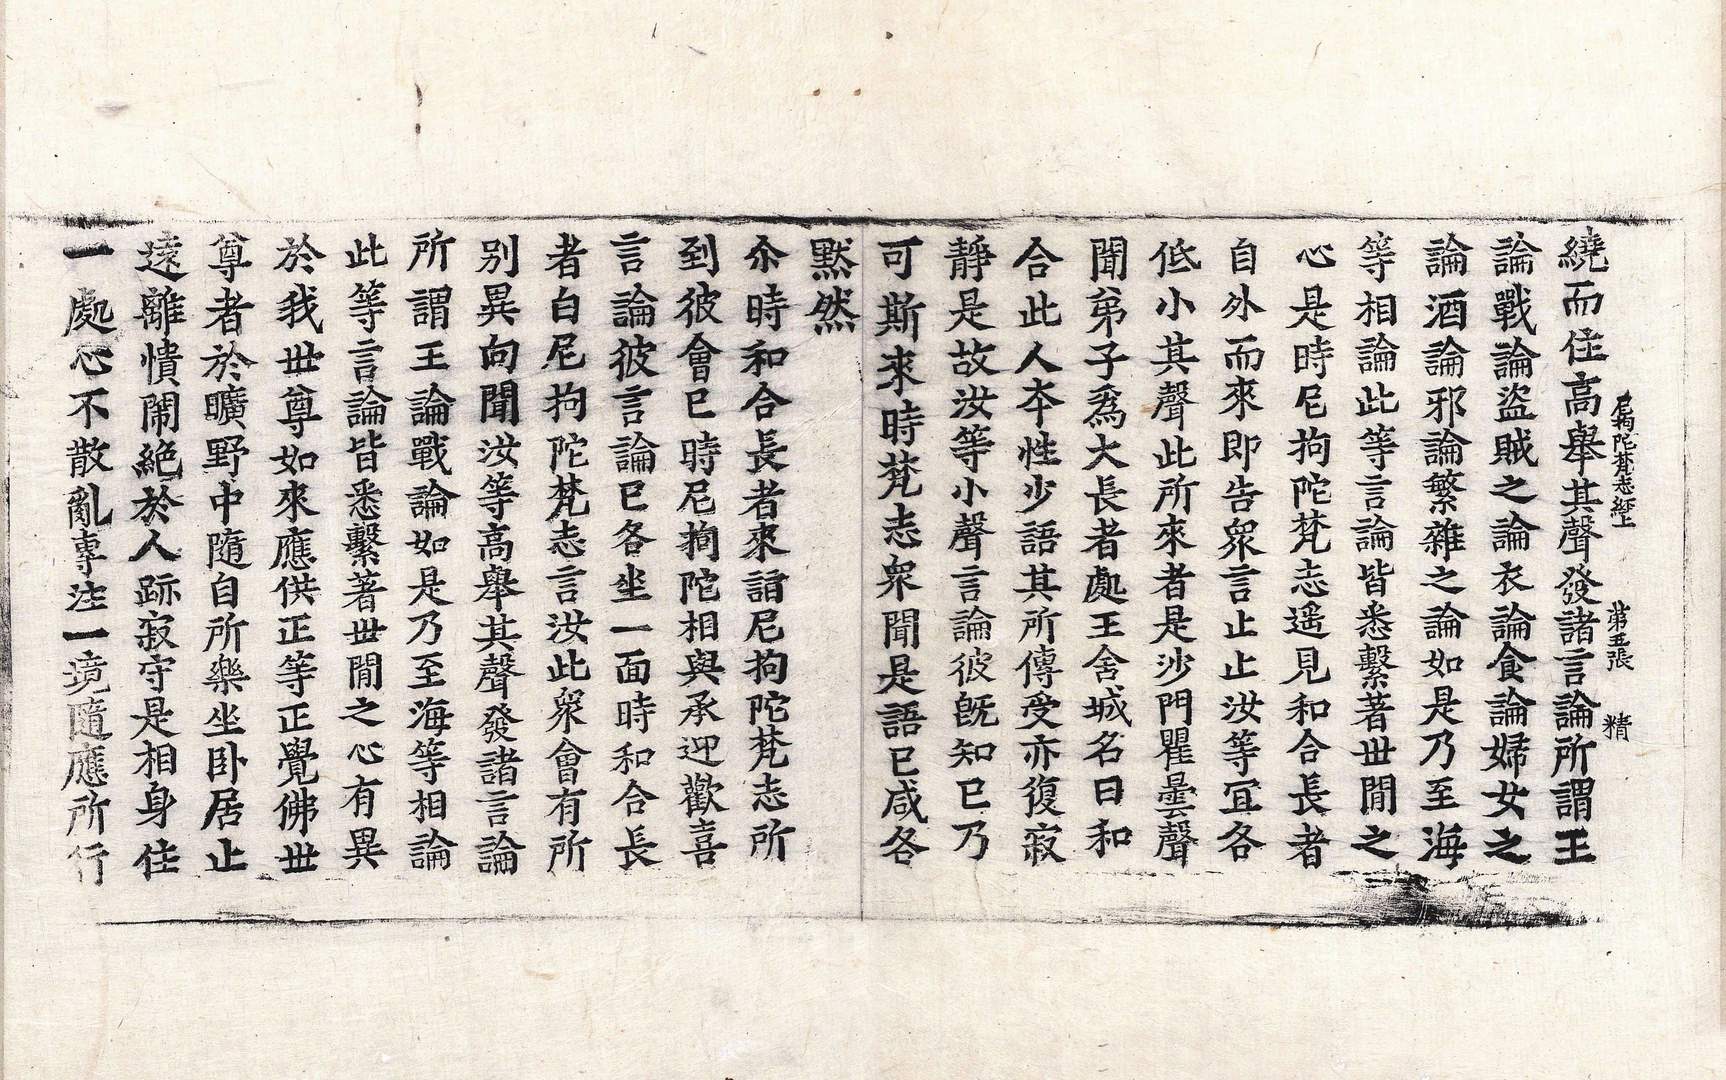 尼拘陀梵志經上　第五張　精
繞而住高舉其聲發諸言論所謂王
論戰論盜賊之論衣論食論婦女之
論酒論邪論繁雜之論如是乃至海
等相論此等言論皆悉繫著丗閒之
心是時尼拘陀梵志遥見和合長者
自外而來即告衆言止止汝等冝各
低小其聲此所來者是沙門瞿曇聲
聞弟子爲大長者處王舍城名曰和
合此人夲性少語其所傳受亦復寂
靜是故汝等小聲言論彼旣知已乃
可斯來時梵志衆聞是語已咸各
默然
尒時和合長者來詣尼拘陀梵志所
到彼會已時尼拘陀相與承迎歡喜
言論彼言論已各坐一面時和合長
者白尼拘陀梵志言汝此衆會有所
別異向聞汝等高舉其聲發諸言論
所謂王論戰論如是乃至海等相論
此等言論皆悉繫著丗閒之心有異
於我丗尊如來應供正等正覺佛丗
尊者於曠野中隨自所樂坐卧居止
遠離憒閙絶於人跡寂守是相身住
一處心不散亂專注一境隨應所行